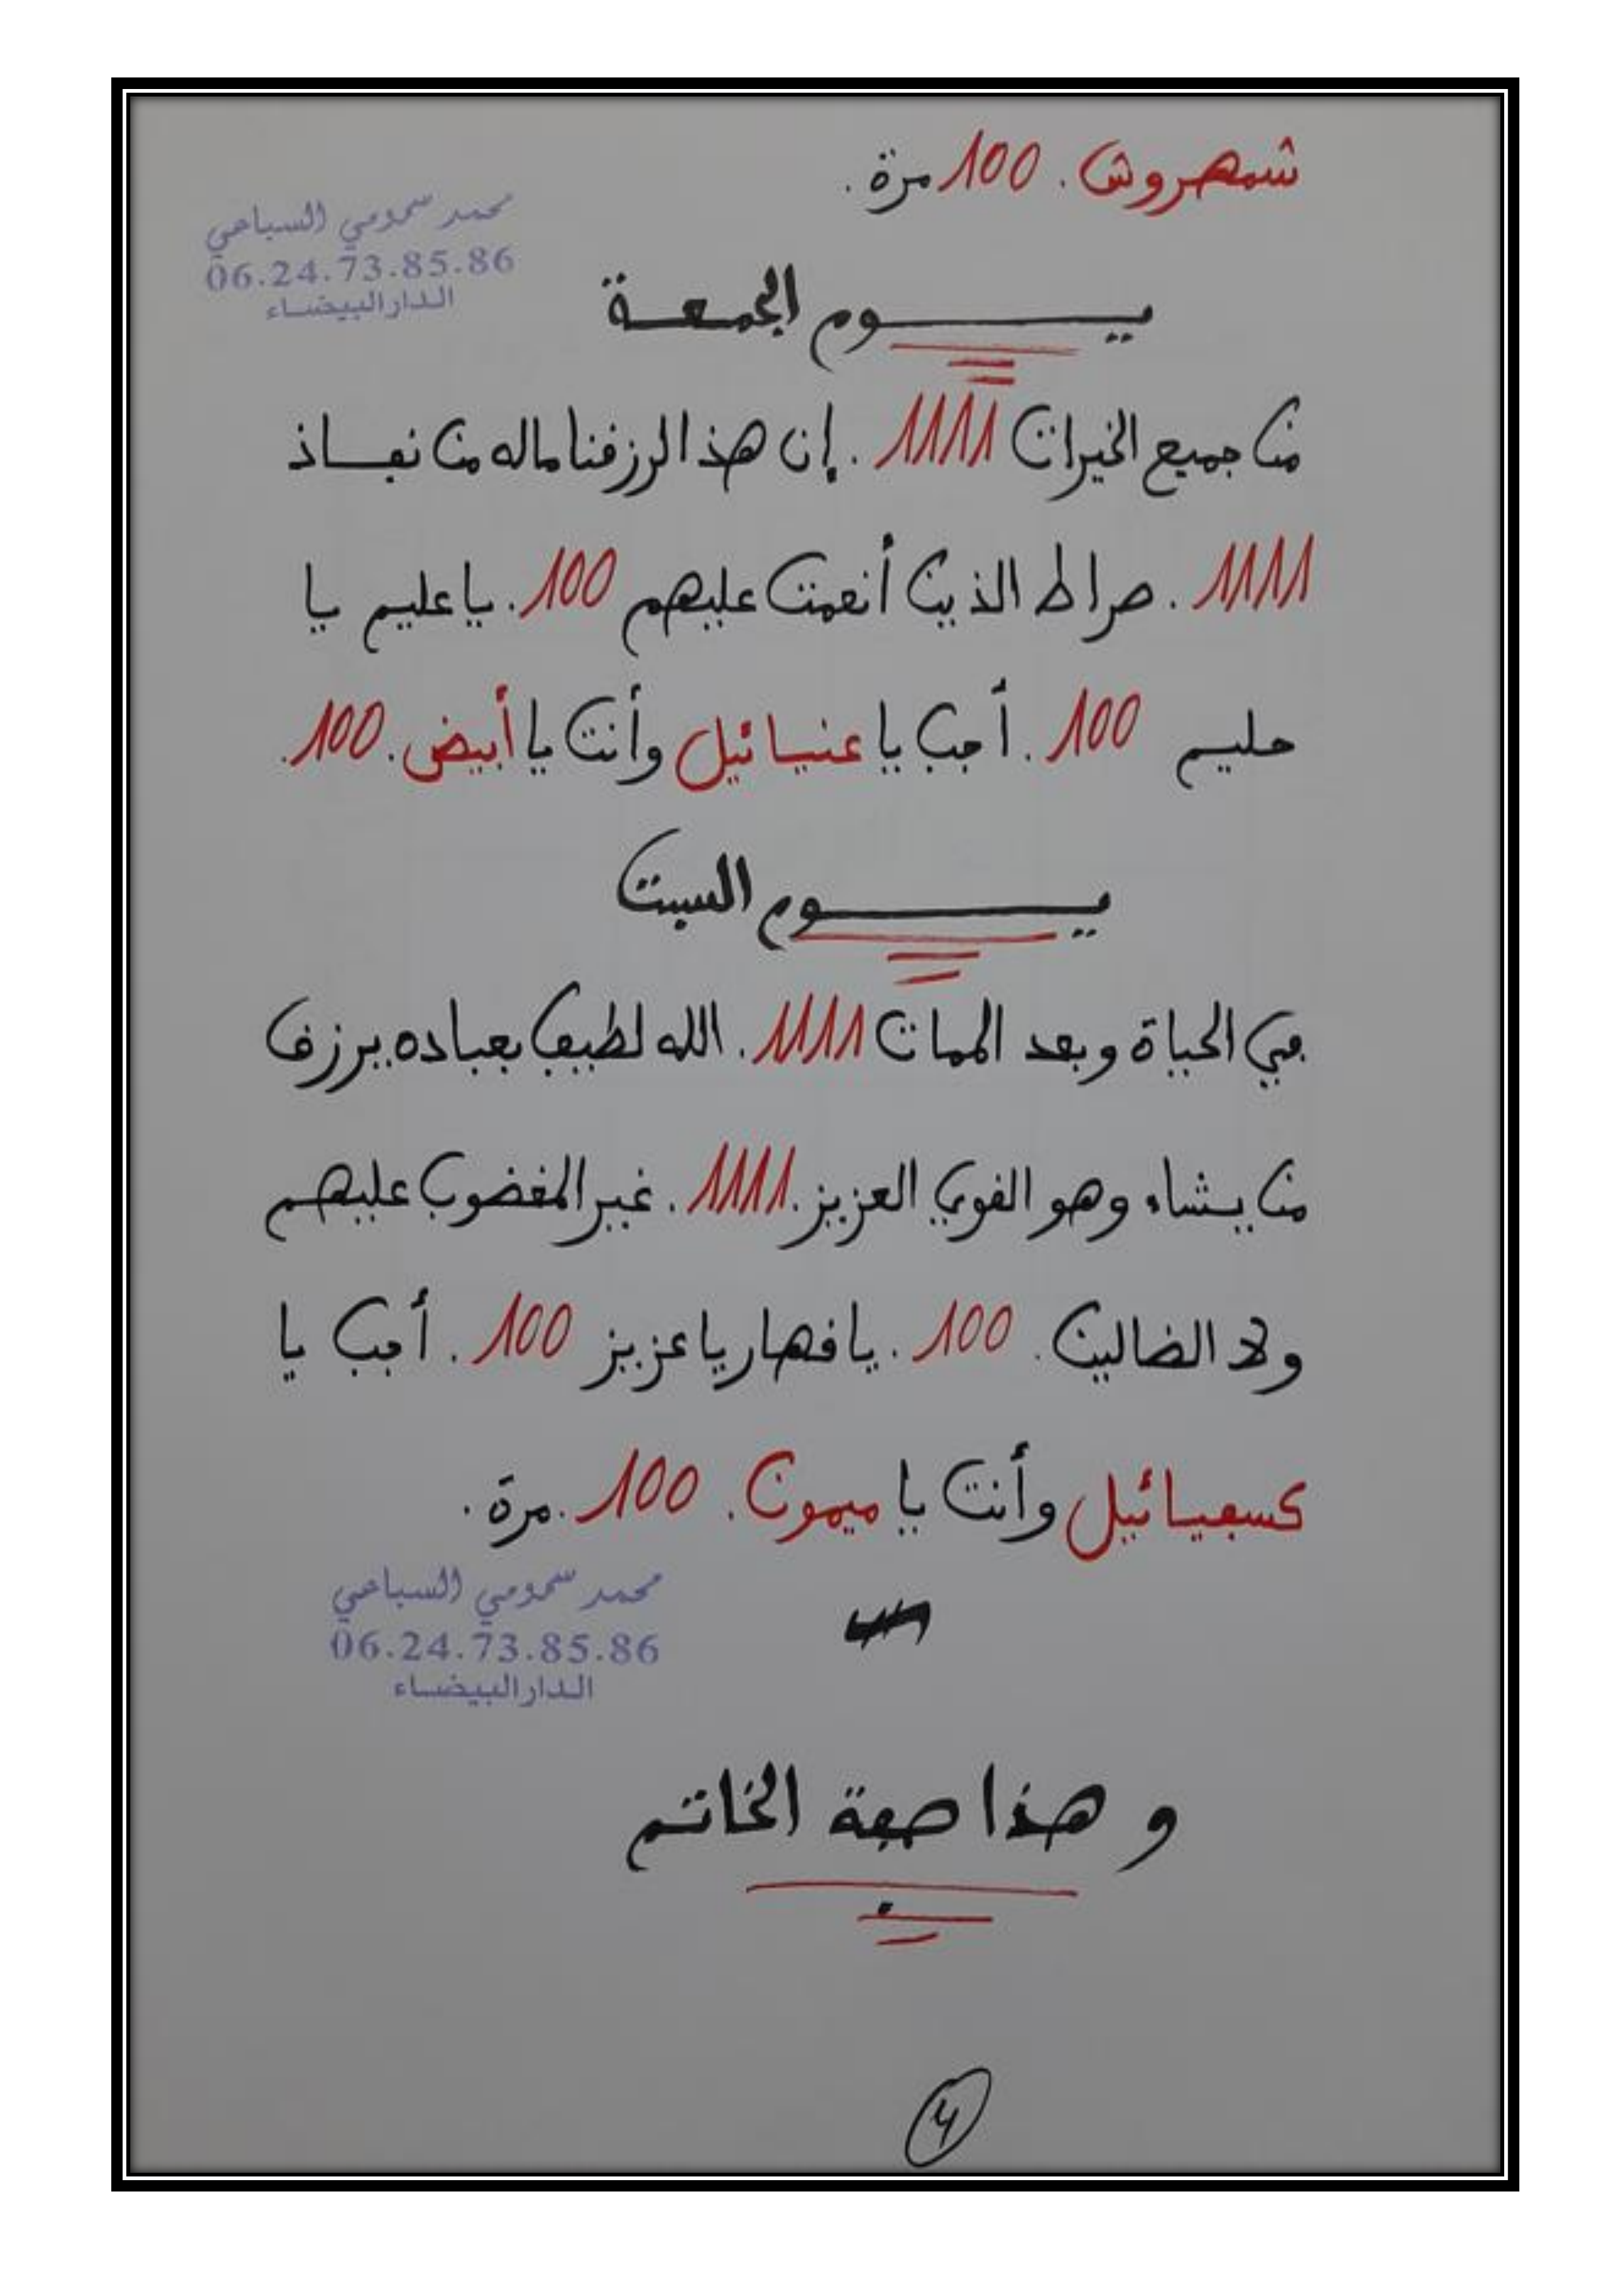 شمهروش. 100 مرة.
محمد سمومي السباعي
06.24.73.85.86
الدار البيضاء
يـــــوم الجمعـــة
من جميع الخيرات 1111. إن هذا لرزقنا ماله من نفـــاذ
1111. صراط الذين أنعمت عليهم 100. يا عليم يا
حليم 100. أجب يا عنيائيل وأنت يا أبيض. 100.
يـــــوم السبت
في الحياة وبعد الممات 1111. الله لطيف بعباده يرزق
من يشاء وهو القوي العزيز. 1111. غير المغضوب عليهم
ولا الضالين. 100. يا قهار يا عزيز 100. أجب يا
كسفيائيل وأنت يا ميمون. 100. مرة.
محمد سمومي السباعي
06.24.73.85.86
الدار البيضاء
و هذا صفة الخاتم
4